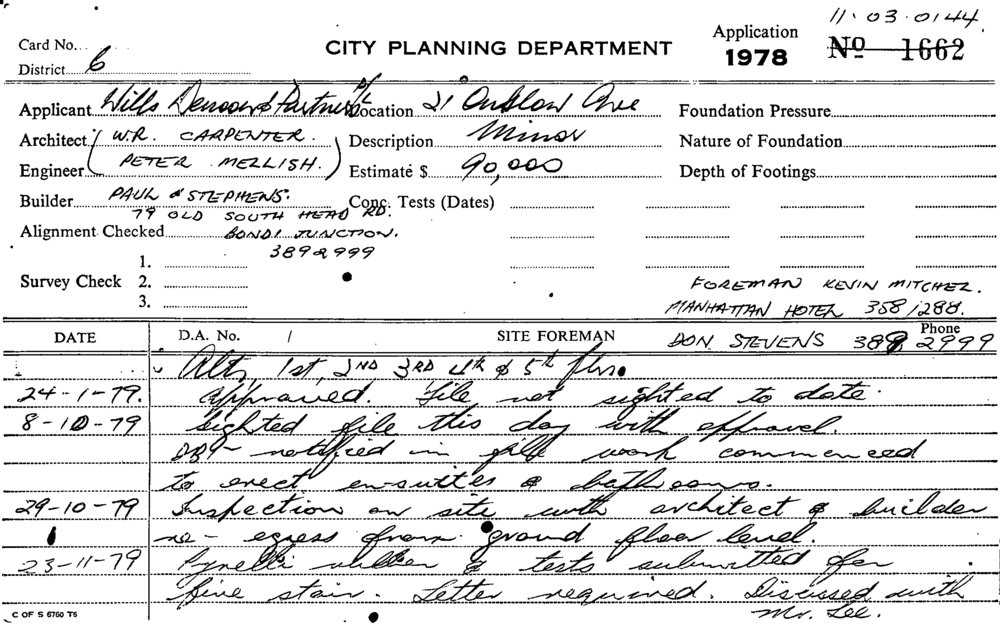 11.03.0144.
Card No...
CITY PLANNING DEPARTMENT
Application
1978
No 1662
District 6
Applicant Wills Denoon & Partners P/L
Location 21 Onslow Ave
Foundation Pressure
Architect W.R. CARPENTER.
Description Minor
Nature of Foundation
Engineer PETER MELLISH.
Estimate $ 90,000
Depth of Footings
Builder PAUL & STEPHENS.
Conc. Tests (Dates)
79 OLD SOUTH HEAD RD.
Alignment Checked BONDI JUNCTION.
3892999
1.
Survey Check 2.
3.
FOREMAN KEVIN MITCHEL.
MANHATTAN HOTEL 358 1288.
DATE D.A. No. / SITE FOREMAN DON. STEVENS Phone 389 2999
Alts, 1st, 2ND 3RD 4th & 5th flrs.
24-1-79. approved. File not sighted to date.
8-10-79 Sighted file this day with approval.
notified in file work commenced
to erect en-suites & bathrooms.
29-10-79 Inspection on site with architect & builder
re- egress from ground floor level.
23-11-79 Pyrelli rubber & tests submitted for
fire stair. Letter required. Discussed with
Mr. Lee.
C OF S 6760 T6